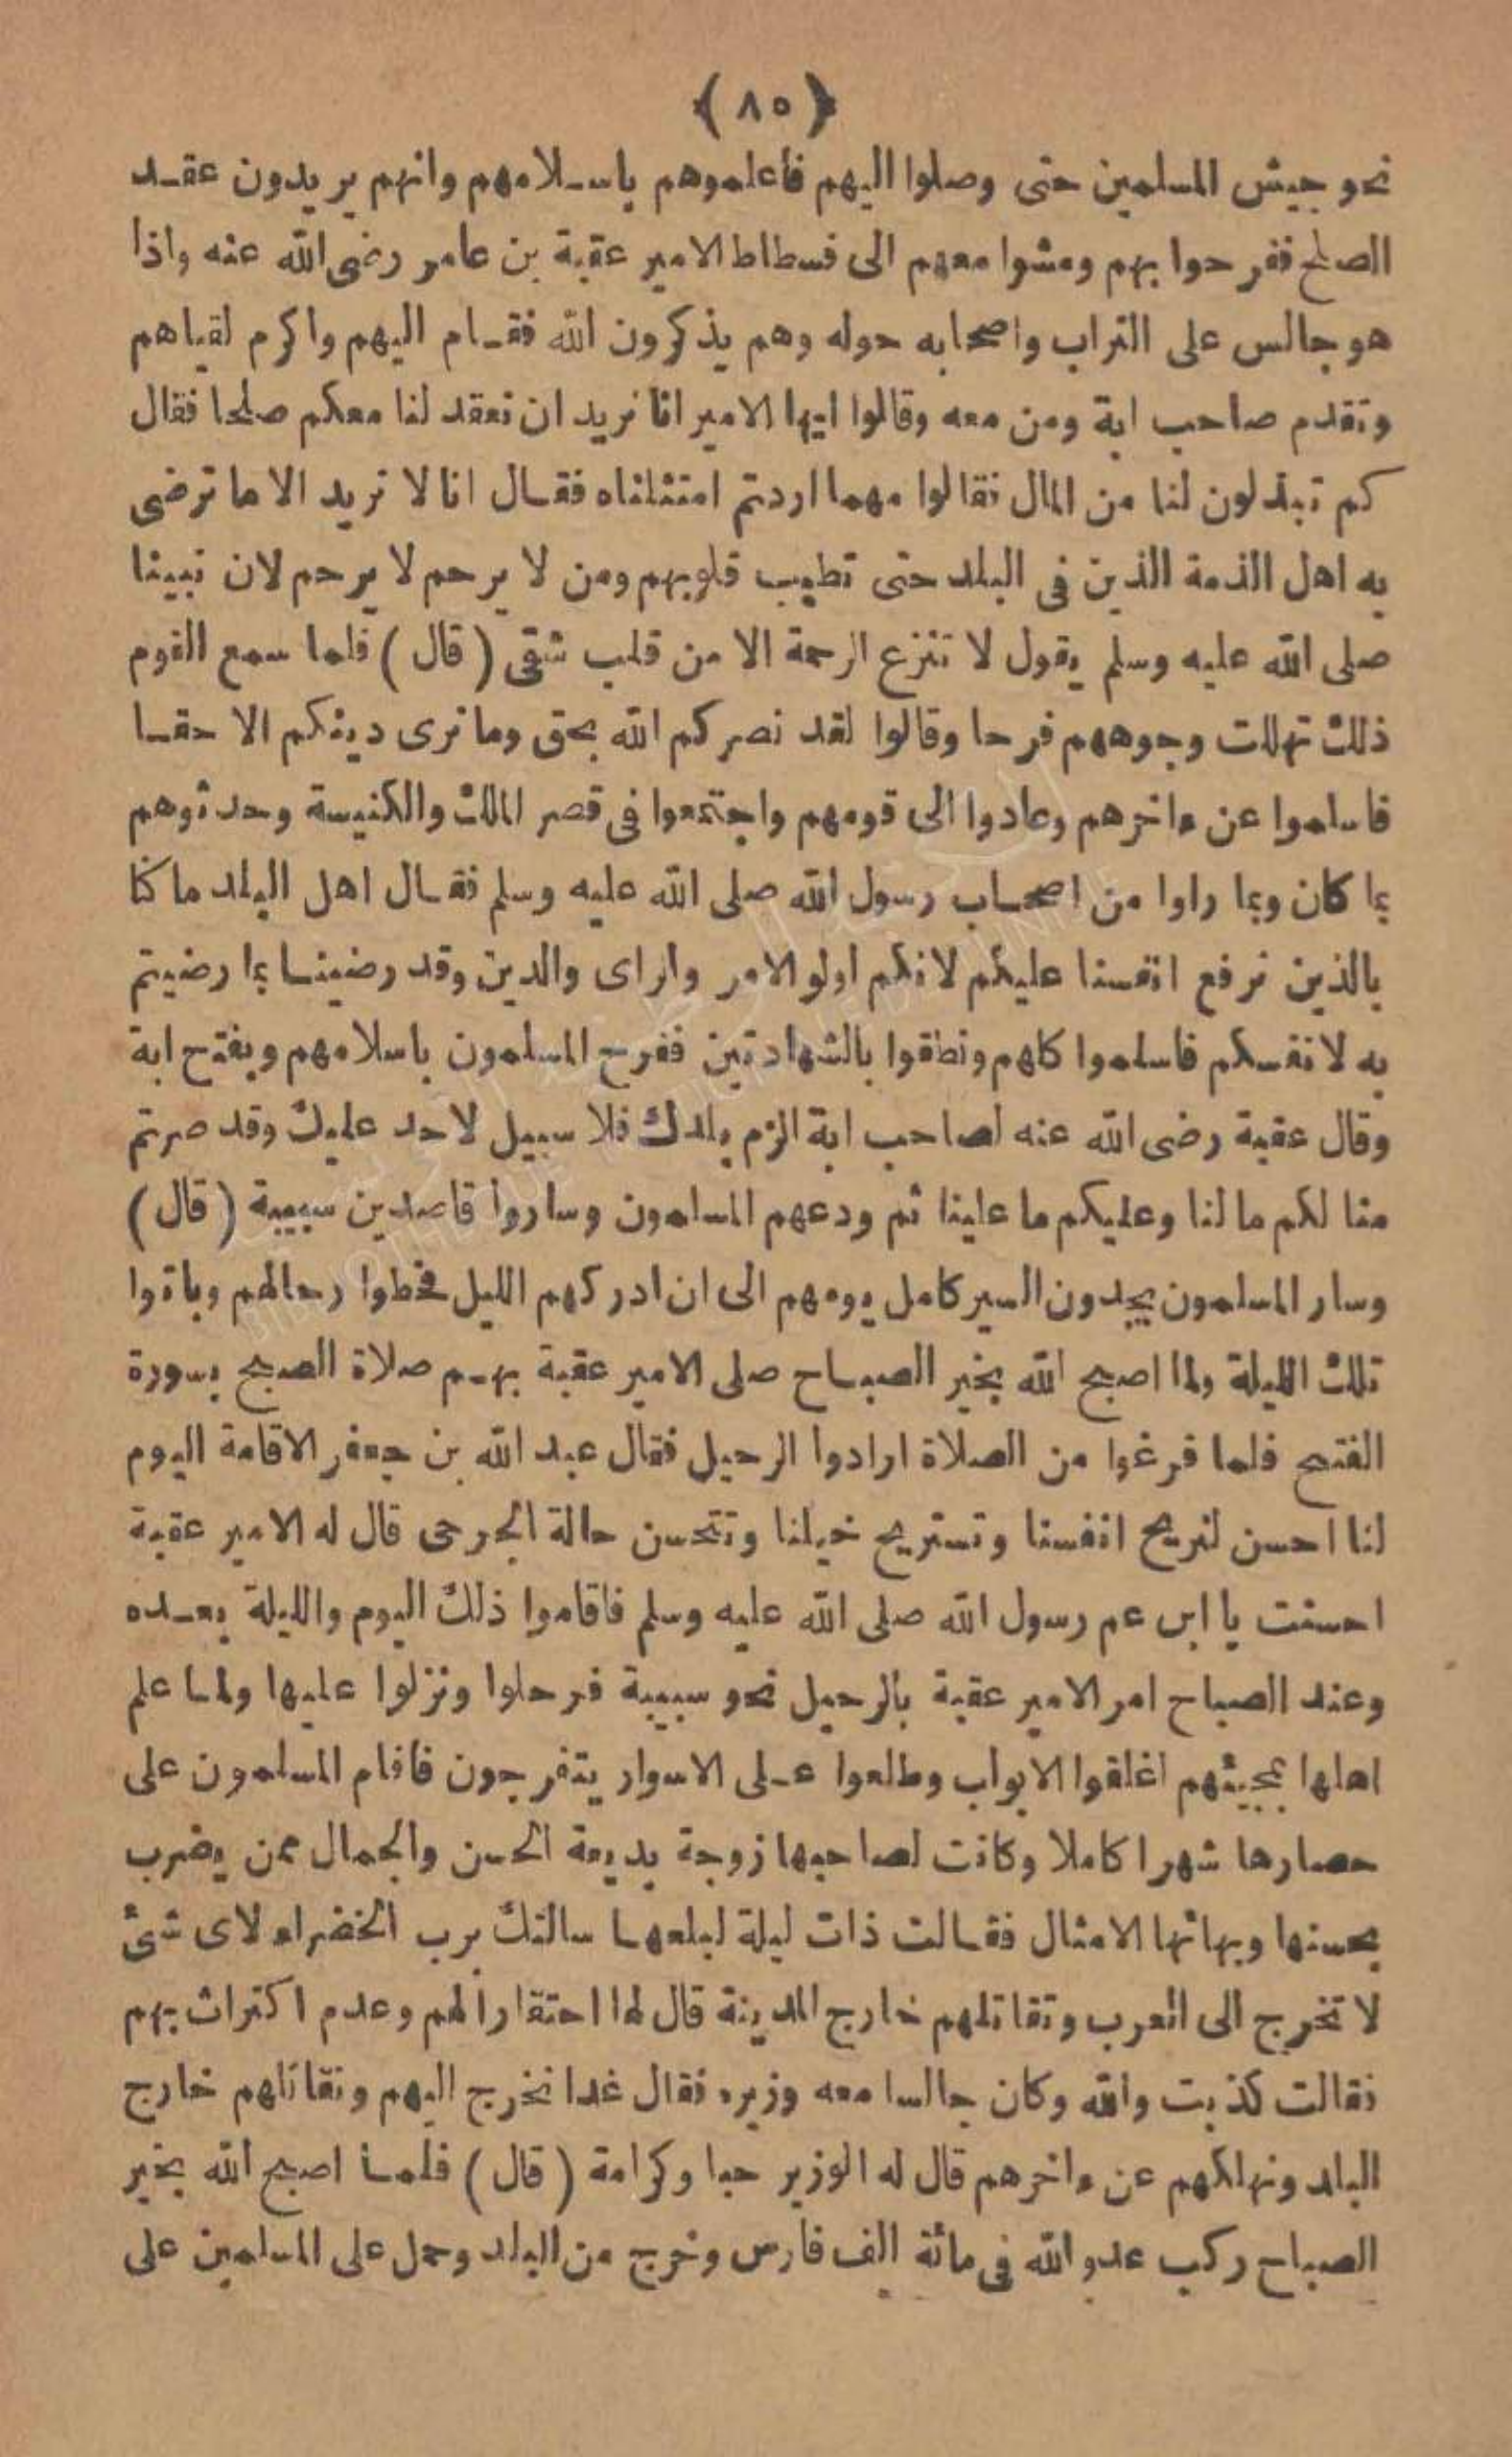 ﴿ ٨٥ ﴾
نحو جيش المسلمين حتى وصلوا اليهم فأعلموهم باسلامهم وانهم يريدون عقد
الصلح ففرحوا بهم ومشوا معهم الى فسطاط الامير عقبة بن عامر رضى الله عنه واذا
هو جالس على التراب واصحابه حوله وهم يذكرون الله فقام اليهم واكرم لقياهم
وتقدم صاحب ابة ومن معه وقالوا ايها الامير انا نريد ان نعقد لنا معكم صلحا فقال
كم تبذلون لنا من المال فقالوا مهما اردتم امتثلناه فقال انا لا نريد الا ما ترضى
به اهل الذمة الذين فى البلد حتى تطيب قلوبهم ومن لا يرحم لا يرحم لان نبينا
صلى الله عليه وسلم يقول لا تنزع الرحمة الا من قلب شقى (قال) فلما سمع القوم
ذلك تهللت وجوههم فرحا وقالوا لقد نصركم الله بحق وما نرى دينكم الا حقا
فاسلموا عن ءاخرهم وعادوا الى قومهم واجتمعوا فى قصر الملك والكنيسة وحدثوهم
بما كان وبما راوا من اصحاب رسول الله صلى الله عليه وسلم فقال اهل البلد ما كنا
بالذين نرفع انفسنا عليكم لانكم اولو الامر والراى والدين وقد رضينا بما رضيتم
به لانفسكم فاسلموا كلهم ونطقوا بالشهادتين ففرح المسلمون باسلامهم وبفتح ابة
وقال عقبة رضى الله عنه لصاحب ابة الزم بلدك فلا سبيل لاحد عليك وقد صرتم
منا لكم ما لنا وعليكم ما علينا ثم ودعهم المسلمون وساروا قاصدين سبيبة (قال)
وسار المسلمون يجدون السير كامل يومهم الى ان ادركهم الليل فحطوا رحالهم وباتوا
تلك الليلة ولما اصبح الله بخير الصباح صلى الامير عقبة بهم صلاة الصبح بسورة
الفتح فلما فرغوا من الصلاة ارادوا الرحيل فقال عبد الله بن جعفر الاقامة اليوم
لنا احسن لنريح انفسنا وتستريح خيلنا وتتحسن حالة الجرحى قال له الامير عقبة
احسنت يا ابن عم رسول الله صلى الله عليه وسلم فاقاموا ذلك اليوم والليلة بعده
وعند الصباح امر الامير عقبة بالرحيل نحو سبيبة فرحلوا ونزلوا عليها ولما علم
اهلها بمجيئهم اغلقوا الابواب وطلعوا على الاسوار يتفرجون فاقام المسلمون على
حصارها شهرا كاملا وكانت لصاحبها زوجة بديعة الحسن والجمال ممن يضرب
بحسنها وبهائها الامثال فقالت ذات ليلة لبعلها سالتك برب الخضراء لاى شئ
لا تخرج الى العرب وتقاتلهم خارج المدينة قال لها احتقارا لهم وعدم اكتراث بهم
فقالت كذبت والله وكان جالسا معه وزيره فقال غدا نخرج اليهم ونقاتلهم خارج
البلد ونهلكهم عن ءاخرهم قال له الوزير حبا وكرامة (قال) فلما اصبح الله بخير
الصباح ركب عدو الله فى مائة الف فارس وخرج من البلد وحمل على المسلمين على